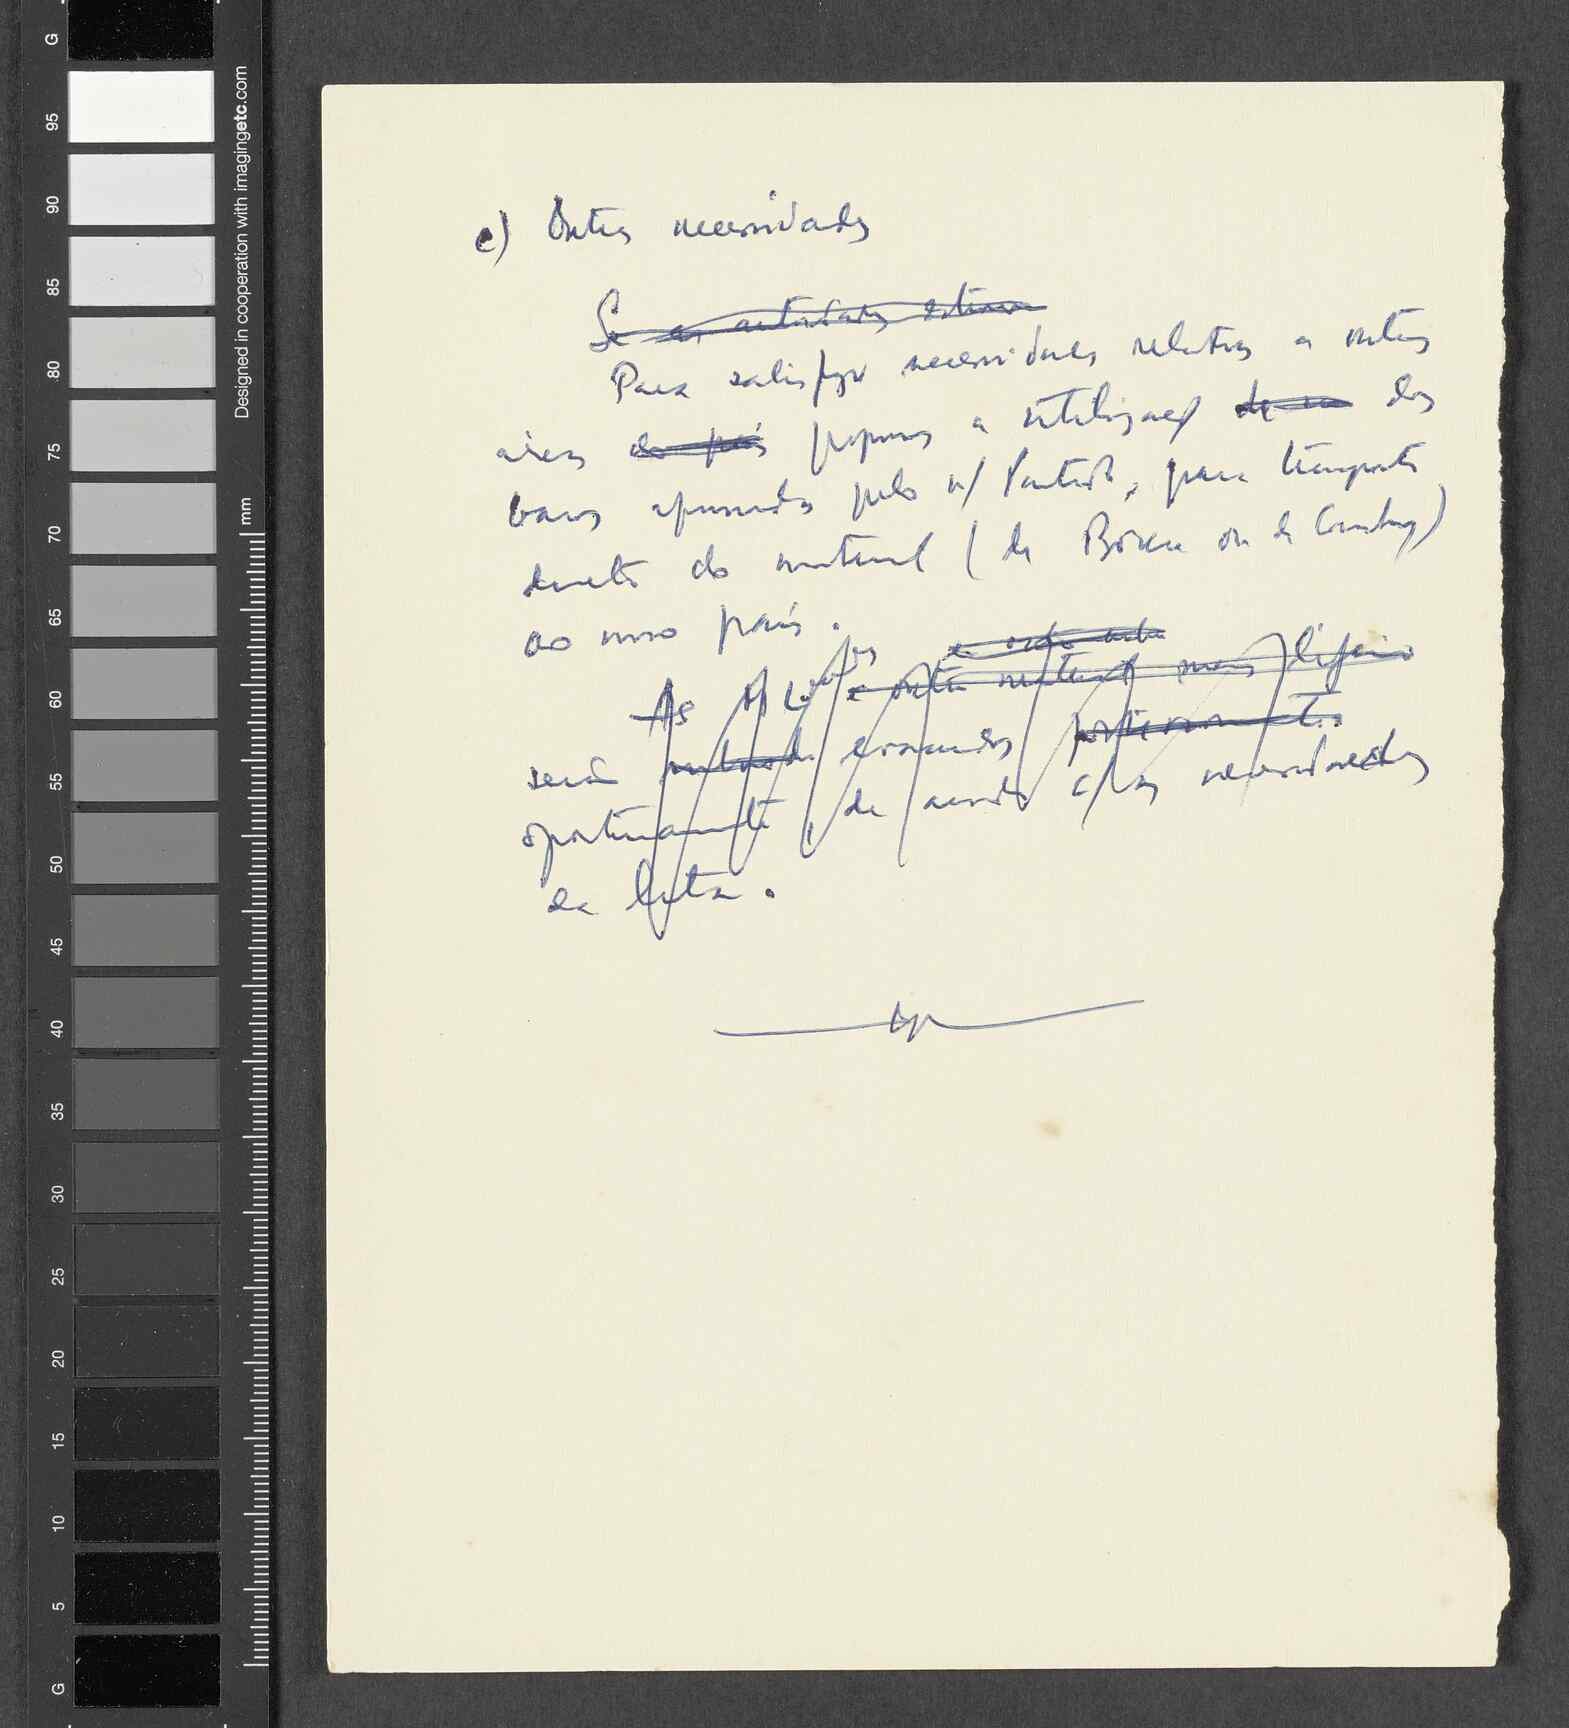 e) Outras necessidades
Se as autoridades
Para satisfazer necessidades relativas a outras
áreas do país propomos a utilização de um dos
barcos apresados pelo n/ Partido, para transporte
directo do material (de Boké ou de Conakry)
ao nosso país.
As
e outro material mais ligeiro
serão enviados posteriormente.
oportunamente, de acordo c/ as necessidades
da luta.
G
95
90
85
80
75
70
65
60
55
50
45
40
35
30
25
20
15
10
5
G
Designed in cooperation with imagingetc.com
mm